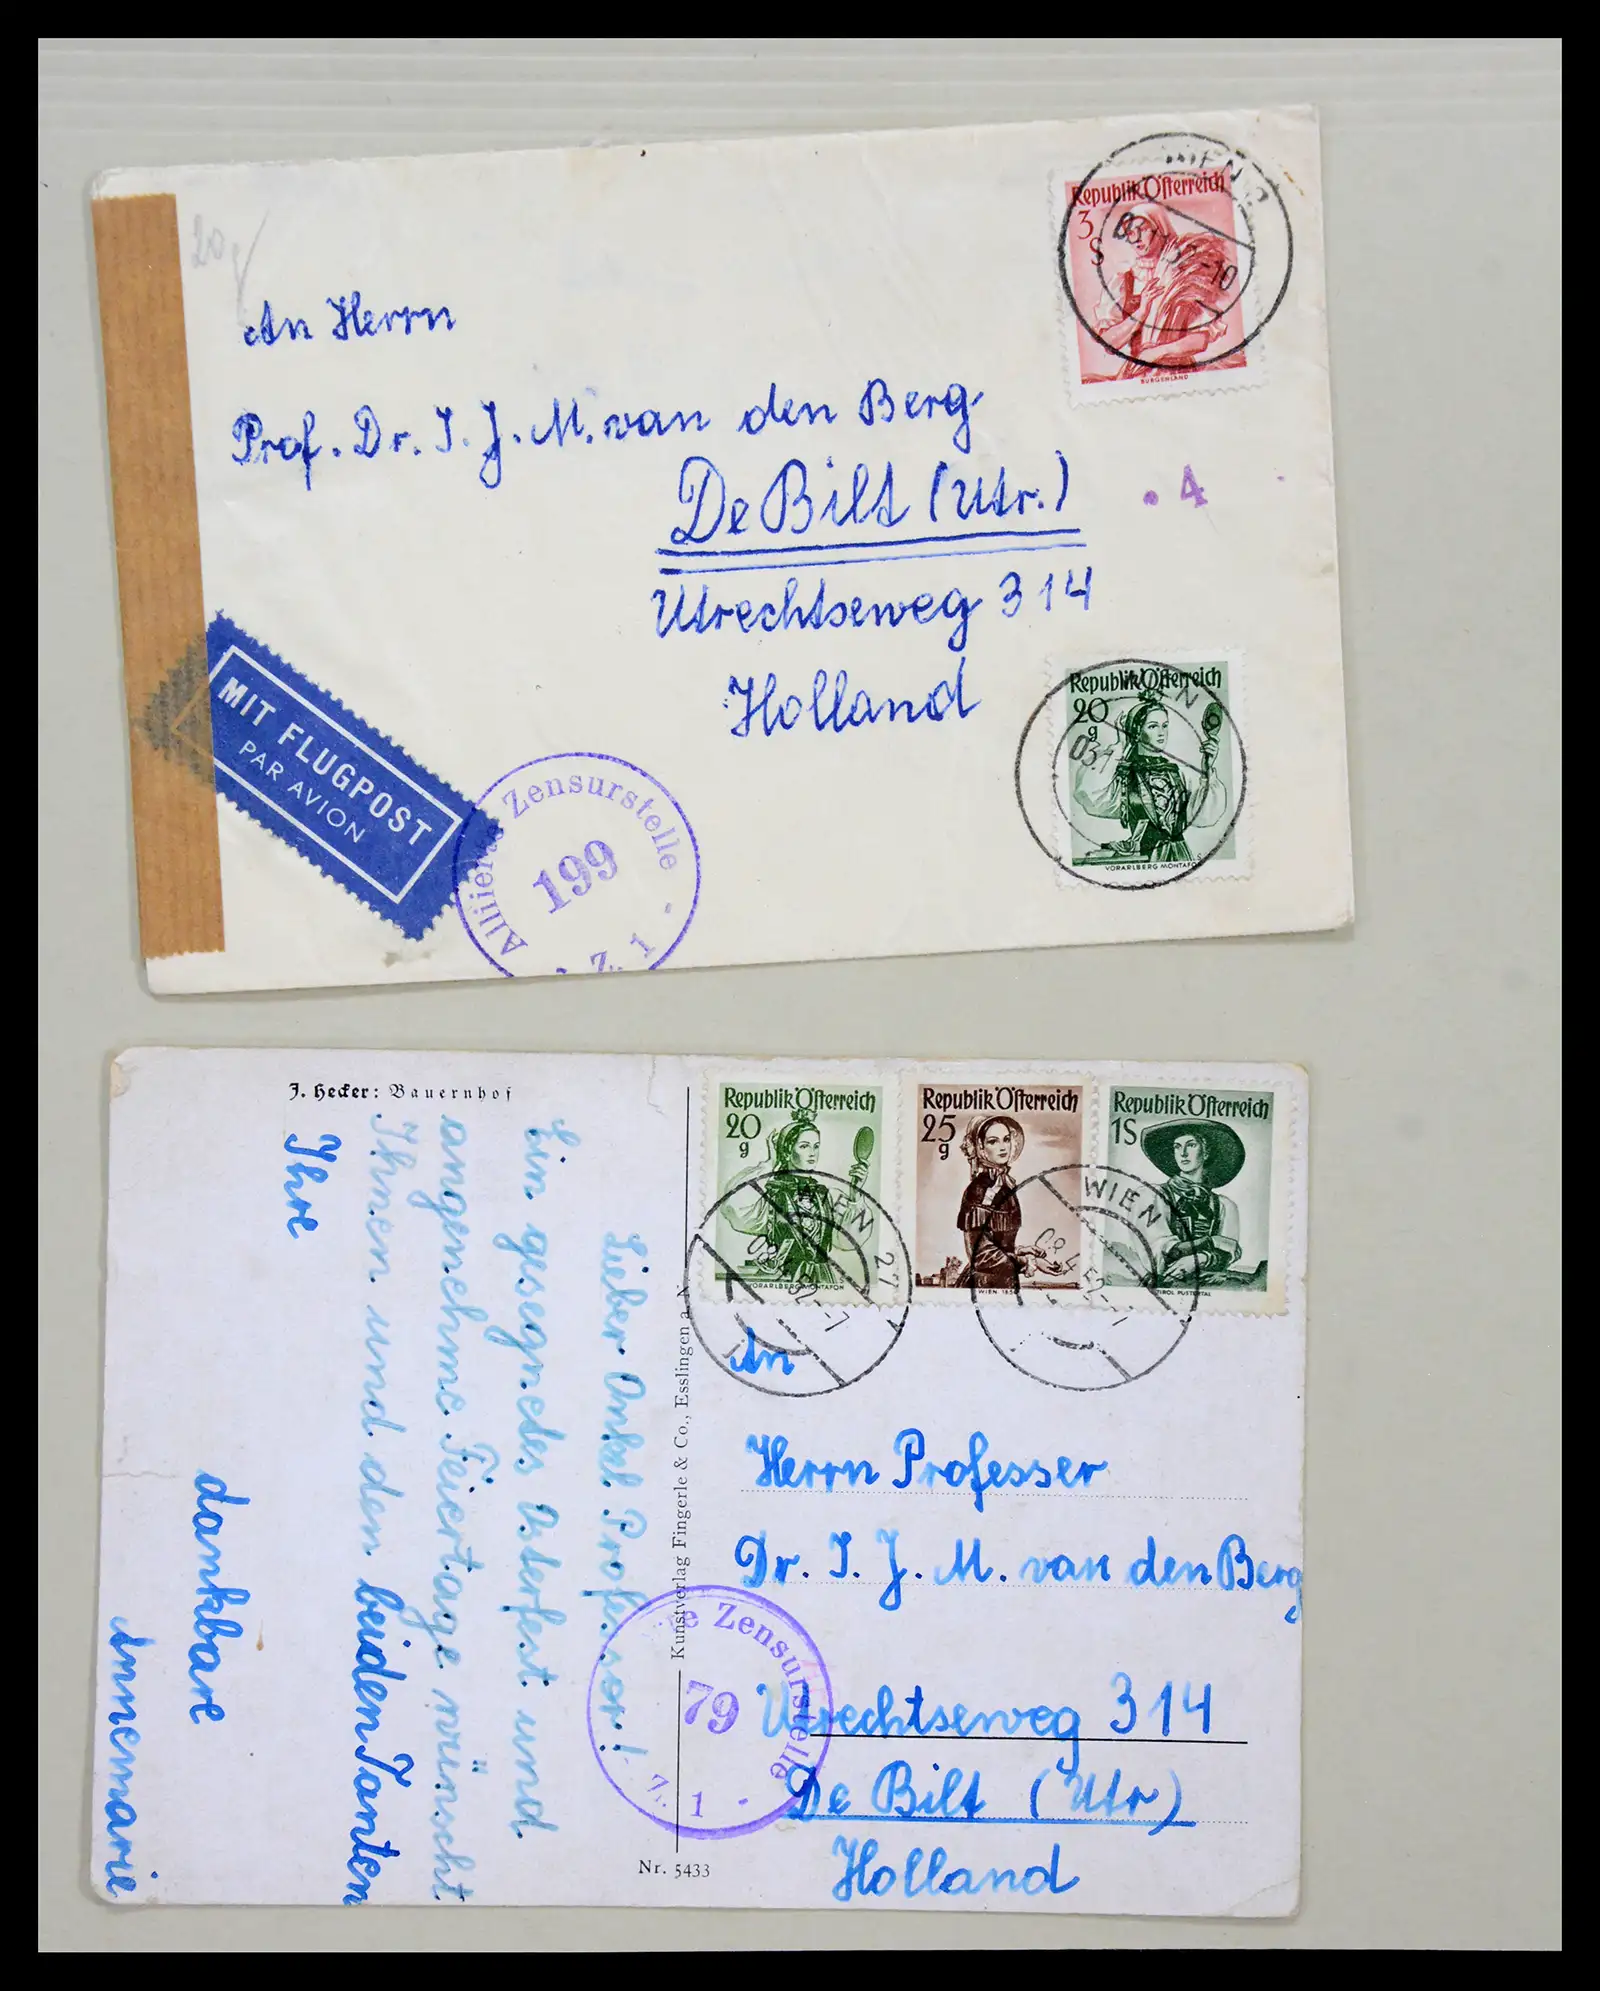 20g
An Herrn
Prof. Dr. I. J. M. van den Berg
De Bilt (Utr.)
Utrechtseweg 314
Holland
. 4
Republik Österreich
3 S
BURGENLAND
03.11.52-10
Republik Österreich
20 g
VORARLBERG MONTAFON
WIEN 9
MIT FLUGPOST
PAR AVION
Alliierte Zensurstelle
199
Z. 1
J. Hecker: Bauernhof
Lieber Onkel Professor!
Ein gesegnetes Osterfest und
angenehme Feiertage wünscht
Ihnen und den beiden Tanten
Ihre
dankbare
Annemarie
Kunstverlag Fingerle & Co., Esslingen a. N.
Nr. 5433
Republik Österreich
20 g
VORARLBERG MONTAFON
Republik Österreich
25 g
WIEN 1850
Republik Österreich
1S
TIROL PUSTERTAL
WIEN 27
WIEN
An
Herrn Professer
Dr. I. J. M. van den Berg
Utrechtseweg 314
De Bilt (Utr)
Holland
Zensurstelle
79
Z. 1